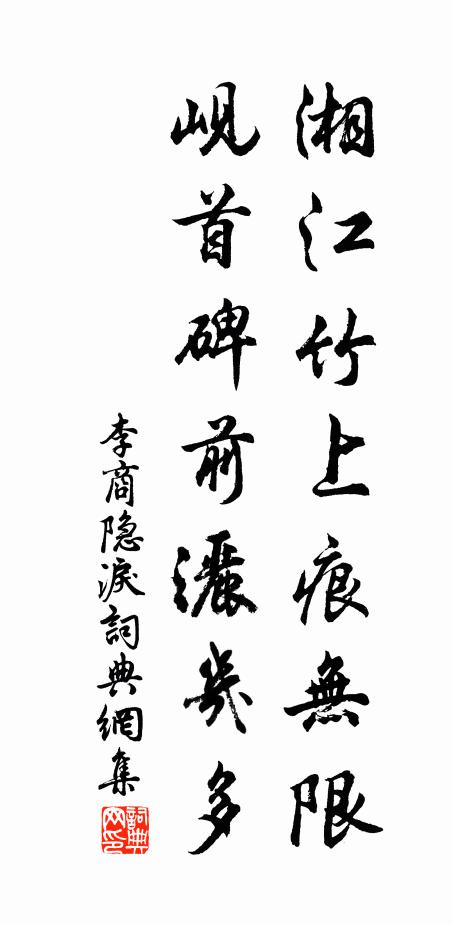 湘江竹上痕無限
峴首碑前灑幾多
李商隐淚詞典網集
詞典网印